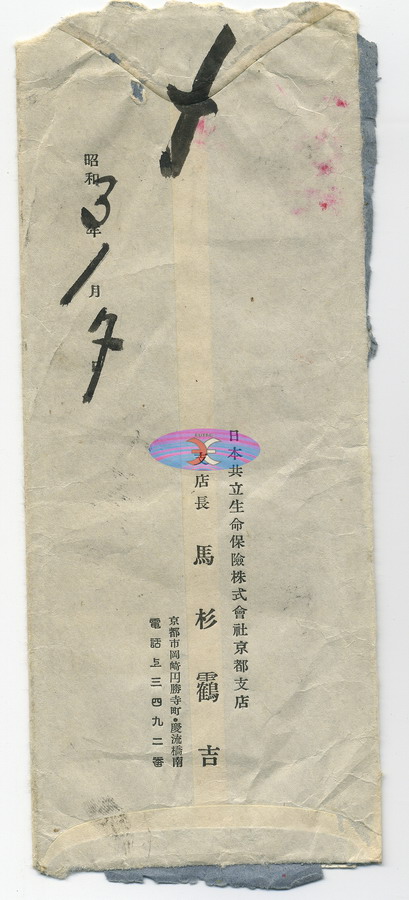 日本共立生命保險株式會社京都支店
支店長 馬杉靍吉
京都市岡崎円勝寺町・慶流橋南
電話上三四九二番
〆
昭和3年1月日